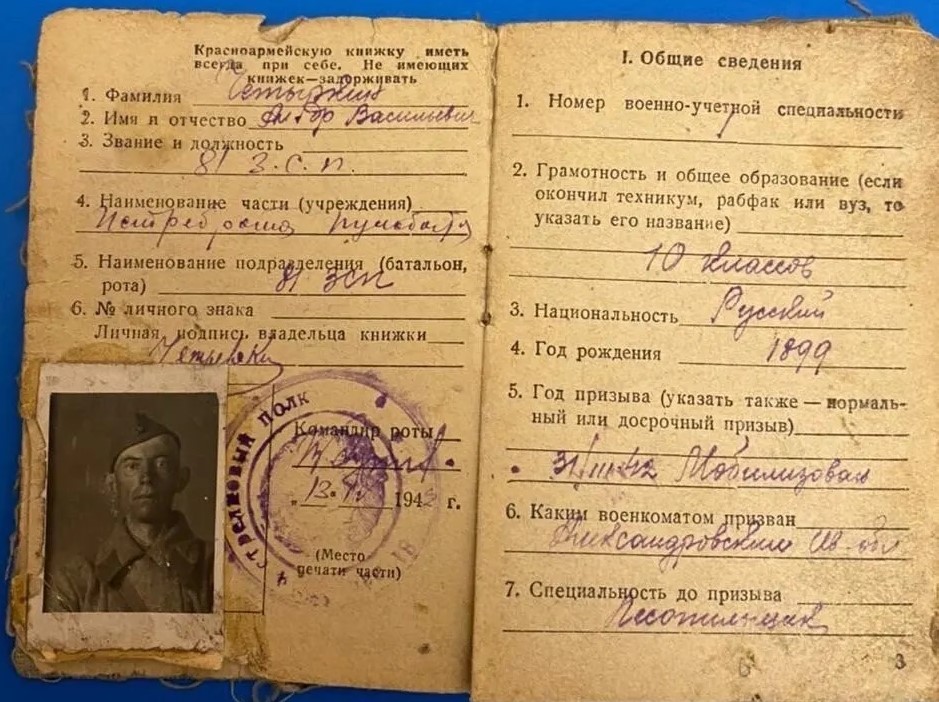 Красноармейскую книжку иметь
всегда при себе. Не имеющих
книжек—задерживать
1. Фамилия
2. Имя и отчество Васильевич
3. Звание и должность
81 З.С.П.
4. Наименование части (учреждения)
5. Наименование подразделения (батальон,
рота) 81 ЗСП
6. № личного знака
Личная подпись владельца книжки
СТРЕЛКОВЫЙ ПОЛК
Командир роты
13. 194 г.
(Место
печати части)
I. Общие сведения
1. Номер военно-учетной специальности
2. Грамотность и общее образование (если
окончил техникум, рабфак или вуз, то
указать его название)
10 классов
3. Национальность Русский
4. Год рождения 1899
5. Год призыва (указать также — нормаль-
ный или досрочный призыв)
31/III 42 Мобилизован
6. Каким военкоматом призван
Александровским Ив. обл
7. Специальность до призыва
3